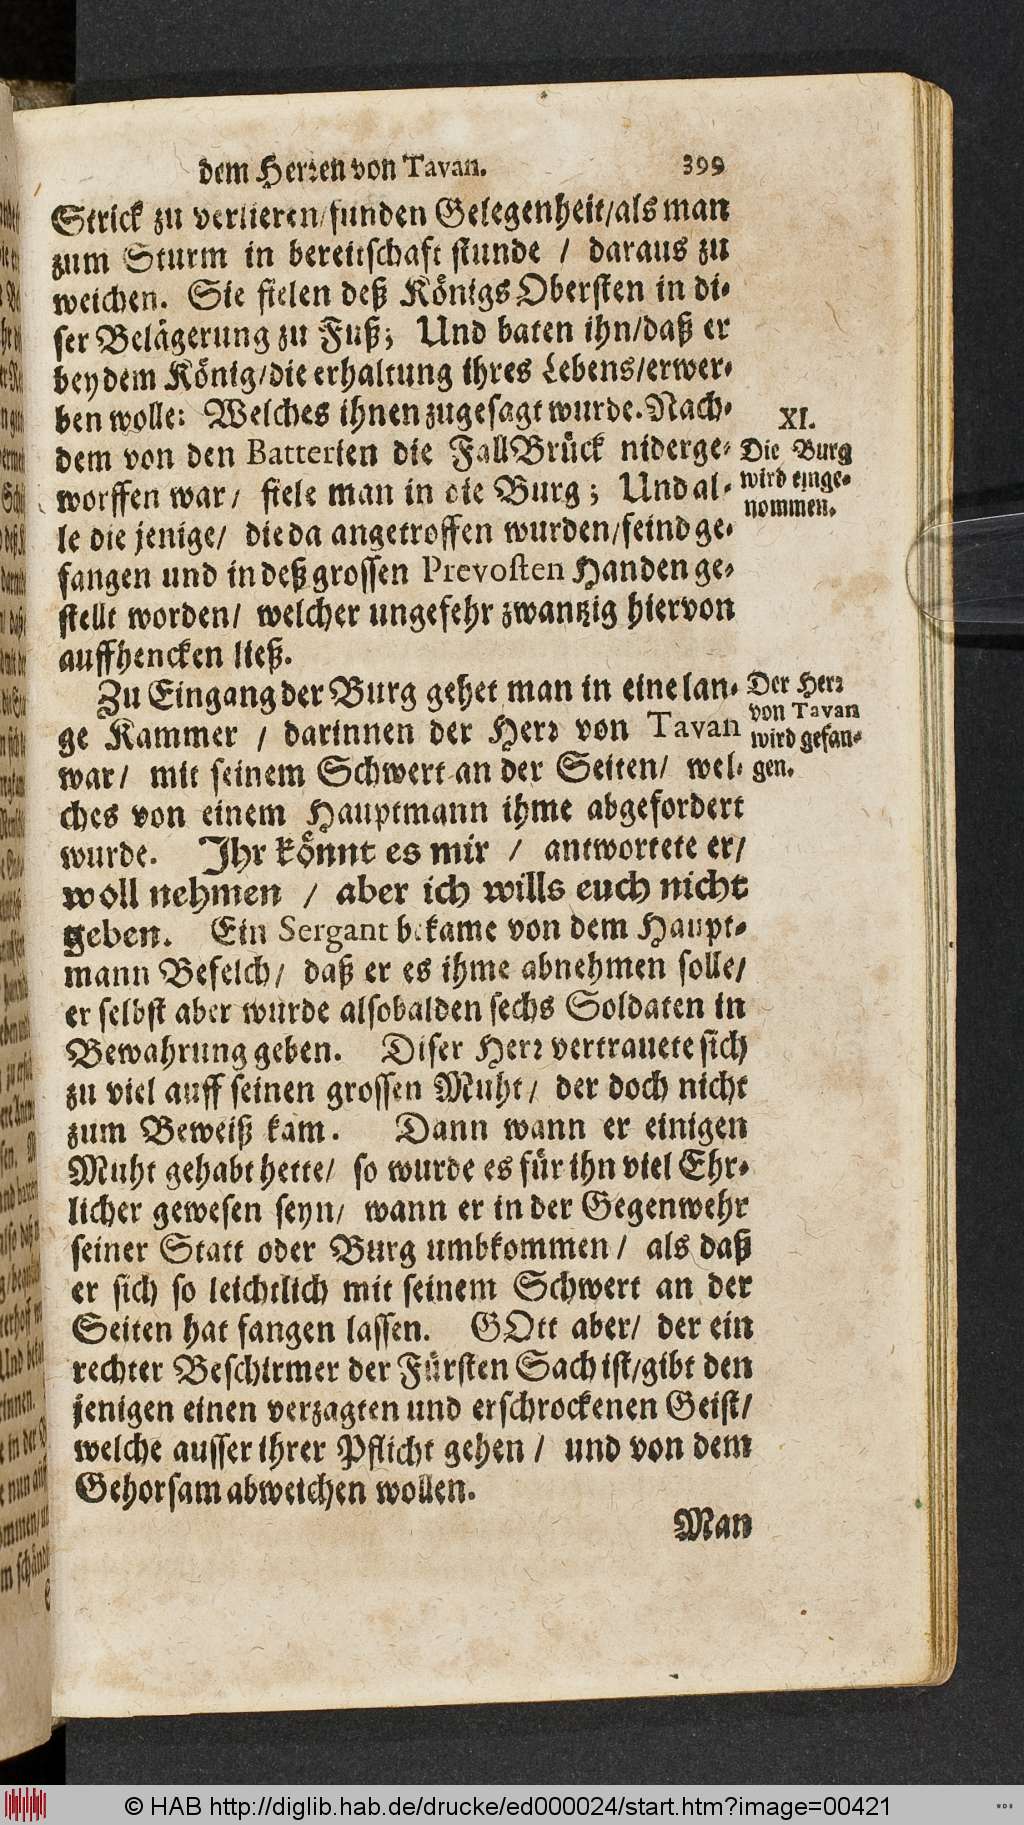 dem Herren von Tavan. 399
Strick zu verlieren/funden Gelegenheit/als man
zum Sturm in bereitschaft stunde / daraus zu
weichen. Sie fielen deß Königs Obersten in di-
ser Belägerung zu Fuß; Und baten ihn/daß er
bey dem König/die erhaltung ihres Lebens/erwer-
ben wolle: Welches ihnen zugesagt wurde. Nach-
dem von den Batterien die FallBrück niderge-
worffen war/ fiele man in die Burg; Und al-
le die jenige/ die da angetroffen wurden/seind ge-
fangen und in deß grossen Prevosten Handen ge-
stellt worden/ welcher ungefehr zwantzig hiervon
auffhencken ließ.
XI.
Die Burg
wird einge-
nommen.
Zu Eingang der Burg gehet man in eine lan-
ge Kammer / darinnen der Herr von Tavan
war/ mit seinem Schwert an der Seiten/ wel-
ches von einem Hauptmann ihme abgefordert
wurde. Ihr könnt es mir / antwortete er/
woll nehmen / aber ich wills euch nicht
geben. Ein Sergant bekame von dem Haupt-
mann Befelch/ daß er es ihme abnehmen solle/
er selbst aber wurde alsobalden sechs Soldaten in
Bewahrung geben. Diser Herr vertrauete sich
zu viel auff seinen grossen Muht/ der doch nicht
zum Beweiß kam. Dann wann er einigen
Muht gehabt hette/ so wurde es für ihn viel Ehr-
licher gewesen seyn/ wann er in der Gegenwehr
seiner Statt oder Burg umbkommen/ als daß
er sich so leichtlich mit seinem Schwert an der
Seiten hat fangen lassen. GOtt aber/ der ein
rechter Beschirmer der Fürsten Sach ist/gibt den
jenigen einen verzagten und erschrockenen Geist/
welche ausser ihrer Pflicht gehen / und von dem
Gehorsam abweichen wollen.
Der Herr
von Tavan
wird gefan-
gen.
Man
© HAB http://diglib.hab.de/drucke/ed000024/start.htm?image=00421